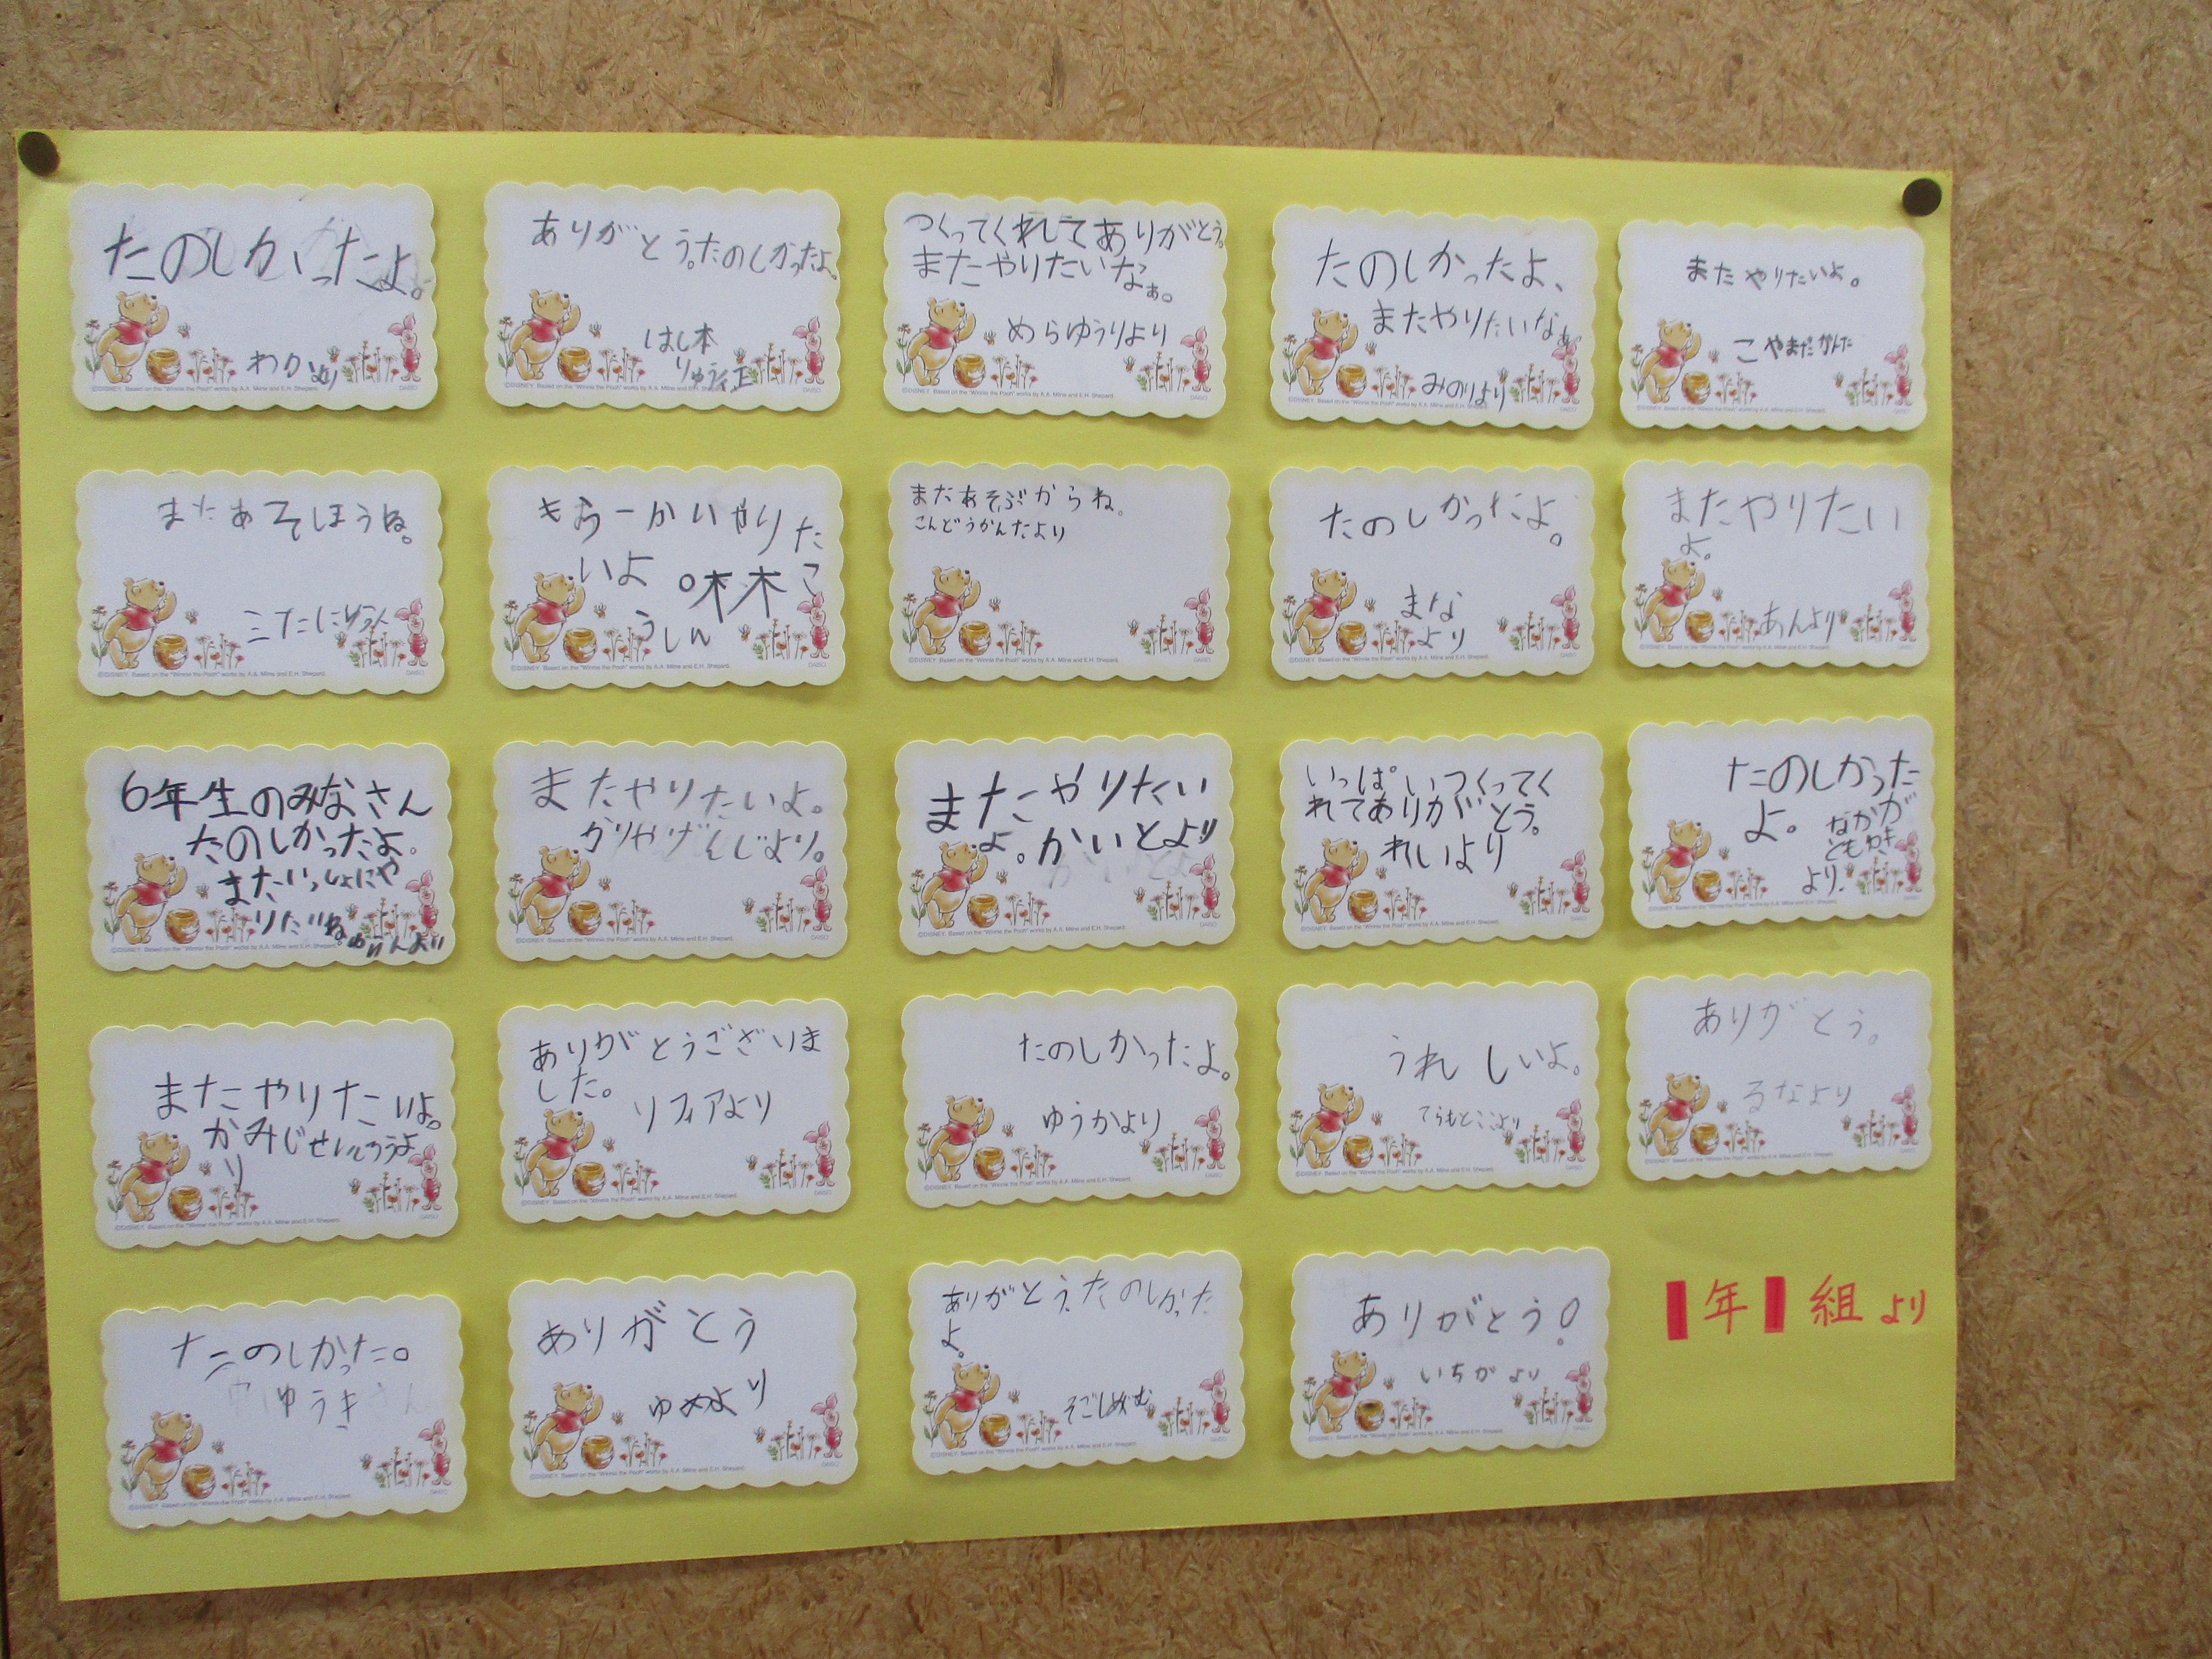 たのしかったよ。
わかより
ありがとう。たのしかったよ。
はし本
つくってくれてありがとう。
またやりたいなぁ。
めらゆうりより
たのしかったよ、
またやりたいなぁ
みのりより
またやりたいよ。
こやまだかんた
またあそぼうね。
もう一かいやりた
いよ。
こ
うしん
まだあそぶからね。
こんどうかんたより
たのしかったよ。
まな
より
またやりたい
よ。
あんより
6年生のみなさん
たのしかったよ。
またいっしょにや
りたいね。
またやりたいよ。
またやりたい
よ。かいとより
いっぱいつくってく
れてありがとう。
れいより
たのしかった
よ。
なかが
ともゆき
より.
またやりたいよ。
かみじせいしろうよ
り
ありがとうございま
した。
ソフィアより
たのしかったよ。
ゆうかより
うれしいよ。
てらもとここより
ありがとう。
るなより
たのしかった。
ゆうき
ありがとう
ゆめより
ありがとう。たのしかった
よ。
ありがとう!
いちかより
年 組より
©DISNEY. Based on the "Winnie the Pooh" works by A.A. Milne and E.H. Shepard.
DAISO